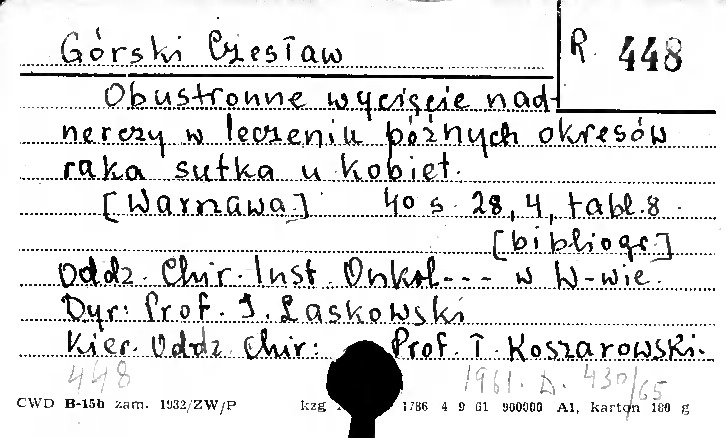 Górski Czesław
R. 448
Obustronne wycięcie nad-
nerczy w leczeniu późnych okresów
raka sutka u kobiet.
[Warszawa] 40 s. 28, 4, tabl. 8.
[bibliogr.]
Oddz. Chir. Inst. Onkol--- w W-wie.
Dyr: Prof. J. Laskowski
Kier. Oddz. Chir: Prof. T. Koszarowski.
448 1961. D. 430/65
CWD B-15b zam. 1932/ZW/P kzg 1786 4 9 61 900000 A1, karton 180 g